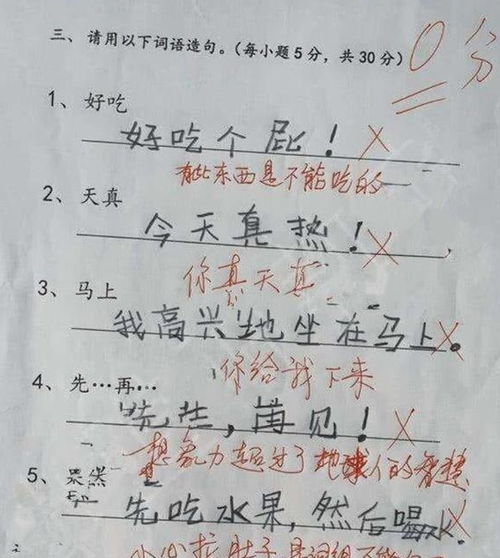 三、请用以下词语造句。（每小题5分，共30分）0分
1、好吃
好吃个屁！
有些东西是不能吃的
2、天真
今天真热！
你真天真
3、马上
我高兴地坐在马上。
你给我下来
4、先…再…
先生，再见！
想象力超过了地球人的智慧
5、果然
先吃水果，然后喝水。